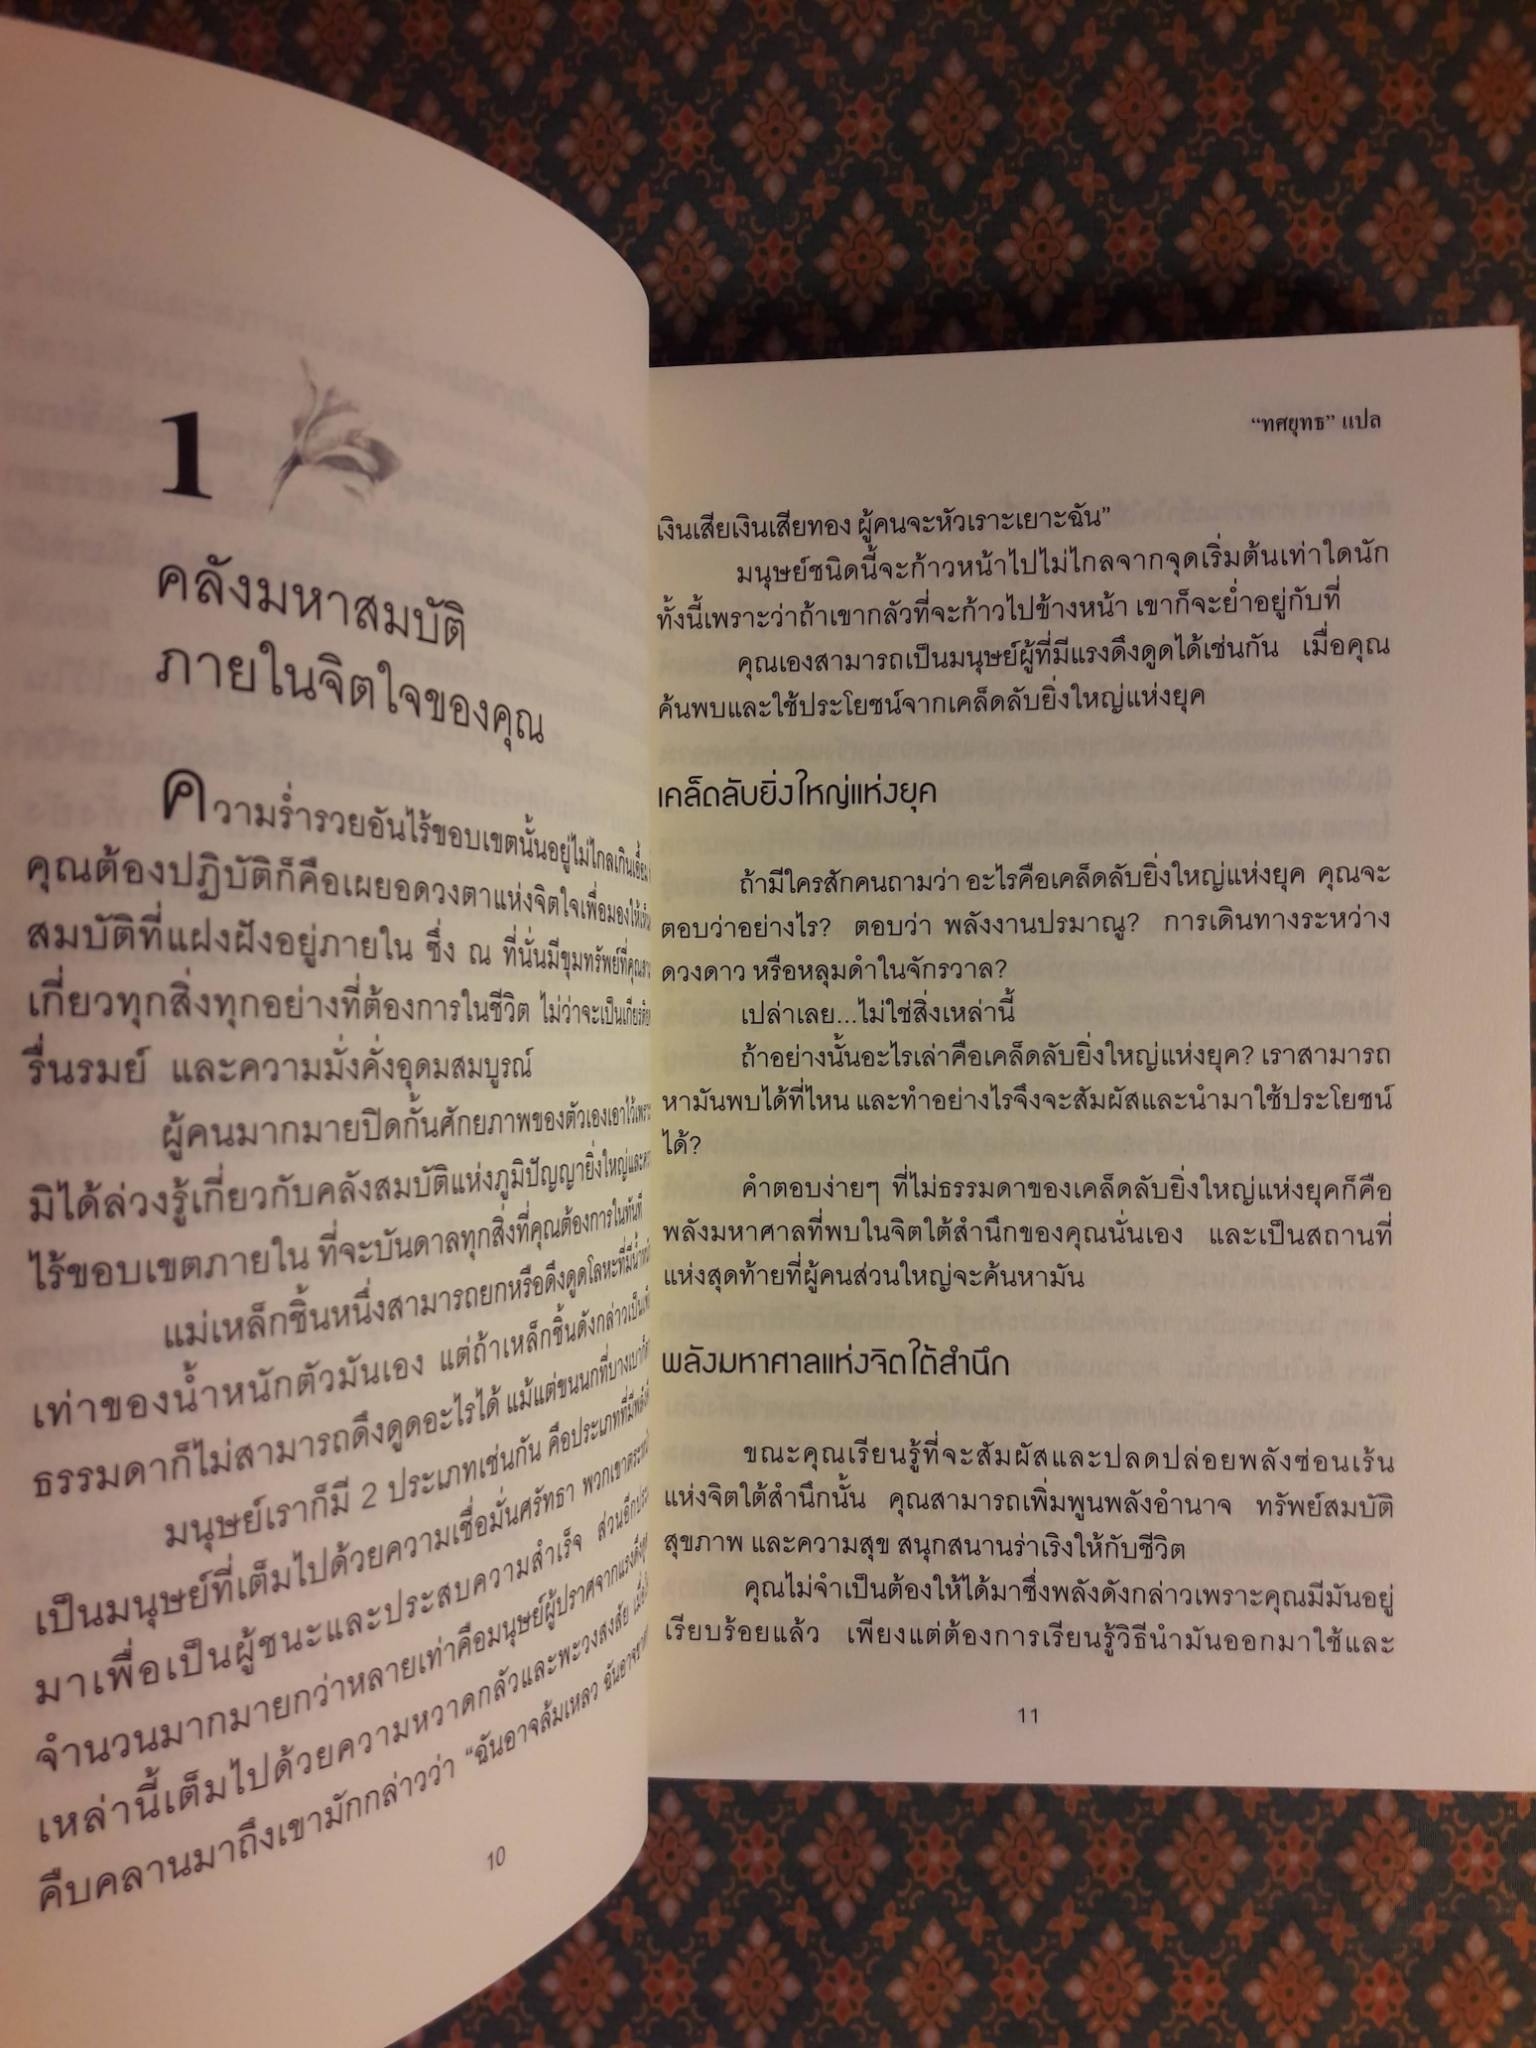 1
คลังมหาสมบัติ
ภายในจิตใจของคุณ
ความร่ำรวยอันไร้ขอบเขตนั้นอยู่ไม่ไกลเกินเอื้อม
คุณต้องปฏิบัติก็คือเผยอดวงตาแห่งจิตใจเพื่อมองให้เห็น
สมบัติที่แฝงฝังอยู่ภายใน ซึ่ง ณ ที่นั่นมีขุมทรัพย์ที่คุณ
เกี่ยวทุกสิ่งทุกอย่างที่ต้องการในชีวิต ไม่ว่าจะเป็น
รื่นรมย์ และความมั่งคั่งอุดมสมบูรณ์
ผู้คนมากมายปิดกั้นศักยภาพของตัวเองเอาไว้เพราะ
มิได้ล่วงรู้เกี่ยวกับคลังสมบัติแห่งภูมิปัญญายิ่งใหญ่และ
ไร้ขอบเขตภายใน ที่จะบันดาลทุกสิ่งที่คุณต้องการในทันที
แม่เหล็กชิ้นหนึ่งสามารถยกหรือดึงดูดโลหะที่มีน้ำหนัก
เท่าของน้ำหนักตัวมันเอง แต่ถ้าเหล็กชิ้นดังกล่าวเป็น
ธรรมดาก็ไม่สามารถดึงดูดอะไรได้ แม้แต่ขนนกที่บางเบา
มนุษย์เราก็มี 2 ประเภทเช่นกัน คือประเภทที่มีพลัง
เป็นมนุษย์ที่เต็มไปด้วยความเชื่อมั่นศรัทธา พวกเขา
มาเพื่อเป็นผู้ชนะและประสบความสำเร็จ ส่วนอีก
จำนวนมากมายกว่าหลายเท่าคือมนุษย์ผู้ปราศจากแรงดึงดูด
เหล่านี้เต็มไปด้วยความหวาดกลัวและพะวงสงสัย
คืบคลานมาถึงเขามักกล่าวว่า “ฉันอาจล้มเหลว ฉันอาจ
10
“ทศยุทธ” แปล
เงินเสียเงินเสียทอง ผู้คนจะหัวเราะเยาะฉัน”
มนุษย์ชนิดนี้จะก้าวหน้าไปไม่ไกลจากจุดเริ่มต้นเท่าใดนัก
ทั้งนี้เพราะว่าถ้าเขากลัวที่จะก้าวไปข้างหน้า เขาก็จะย่ำอยู่กับที่
คุณเองสามารถเป็นมนุษย์ผู้ที่มีแรงดึงดูดได้เช่นกัน เมื่อคุณ
ค้นพบและใช้ประโยชน์จากเคล็ดลับยิ่งใหญ่แห่งยุค
เคล็ดลับยิ่งใหญ่แห่งยุค
ถ้ามีใครสักคนถามว่า อะไรคือเคล็ดลับยิ่งใหญ่แห่งยุค คุณจะ
ตอบว่าอย่างไร? ตอบว่า พลังงานปรมาณู? การเดินทางระหว่าง
ดวงดาว หรือหลุมดำในจักรวาล?
เปล่าเลย...ไม่ใช่สิ่งเหล่านี้
ถ้าอย่างนั้นอะไรเล่าคือเคล็ดลับยิ่งใหญ่แห่งยุค? เราสามารถ
หามันพบได้ที่ไหน และทำอย่างไรจึงจะสัมผัสและนำมาใช้ประโยชน์
ได้?
คำตอบง่ายๆ ที่ไม่ธรรมดาของเคล็ดลับยิ่งใหญ่แห่งยุคก็คือ
พลังมหาศาลที่พบในจิตใต้สำนึกของคุณนั่นเอง และเป็นสถานที่
แห่งสุดท้ายที่ผู้คนส่วนใหญ่จะค้นหามัน
พลังมหาศาลแห่งจิตใต้สำนึก
ขณะคุณเรียนรู้ที่จะสัมผัสและปลดปล่อยพลังซ่อนเร้น
แห่งจิตใต้สำนึกนั้น คุณสามารถเพิ่มพูนพลังอำนาจ ทรัพย์สมบัติ
สุขภาพ และความสุข สนุกสนานร่าเริงให้กับชีวิต
คุณไม่จำเป็นต้องให้ได้มาซึ่งพลังดังกล่าวเพราะคุณมีมันอยู่
เรียบร้อยแล้ว เพียงแต่ต้องการเรียนรู้วิธีนำมันออกมาใช้และ
11